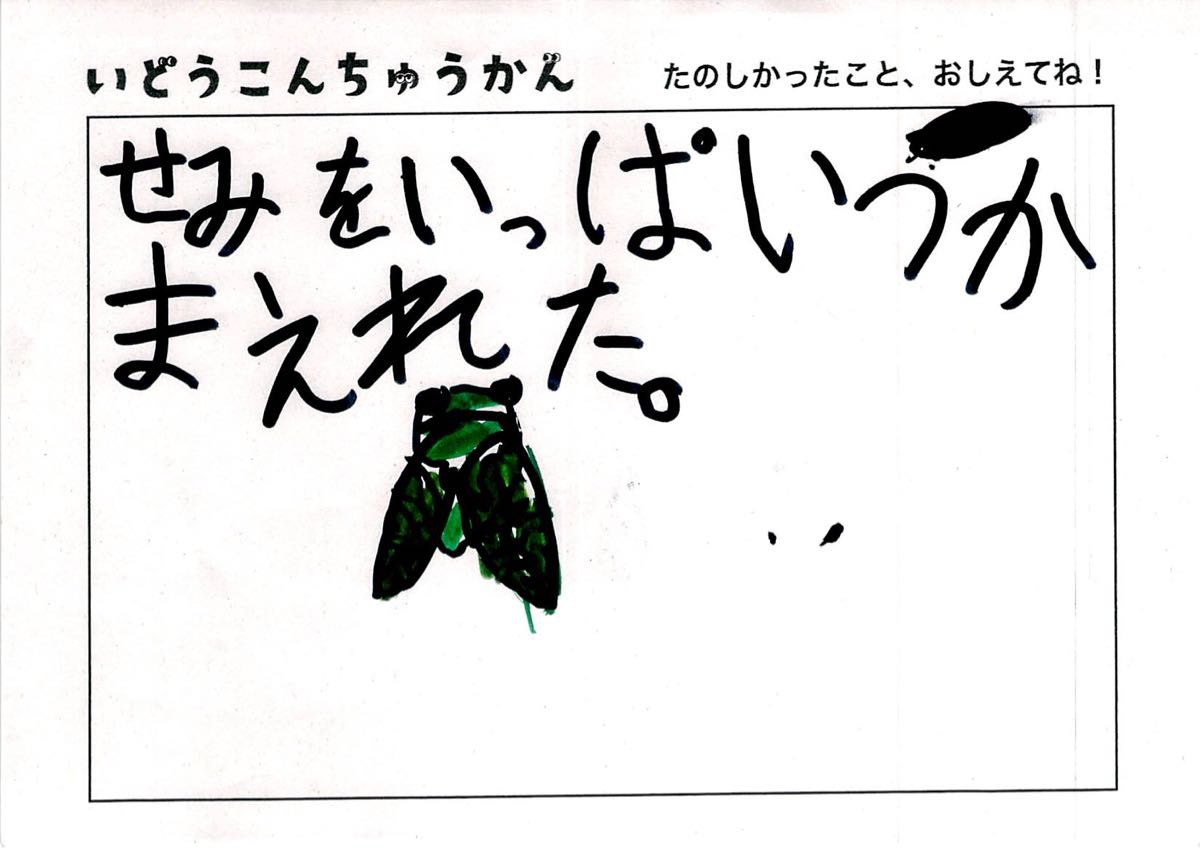 いどうこんちゅうかん
たのしかったこと、おしえてね!
せみをいっぱいつか
まえれた。